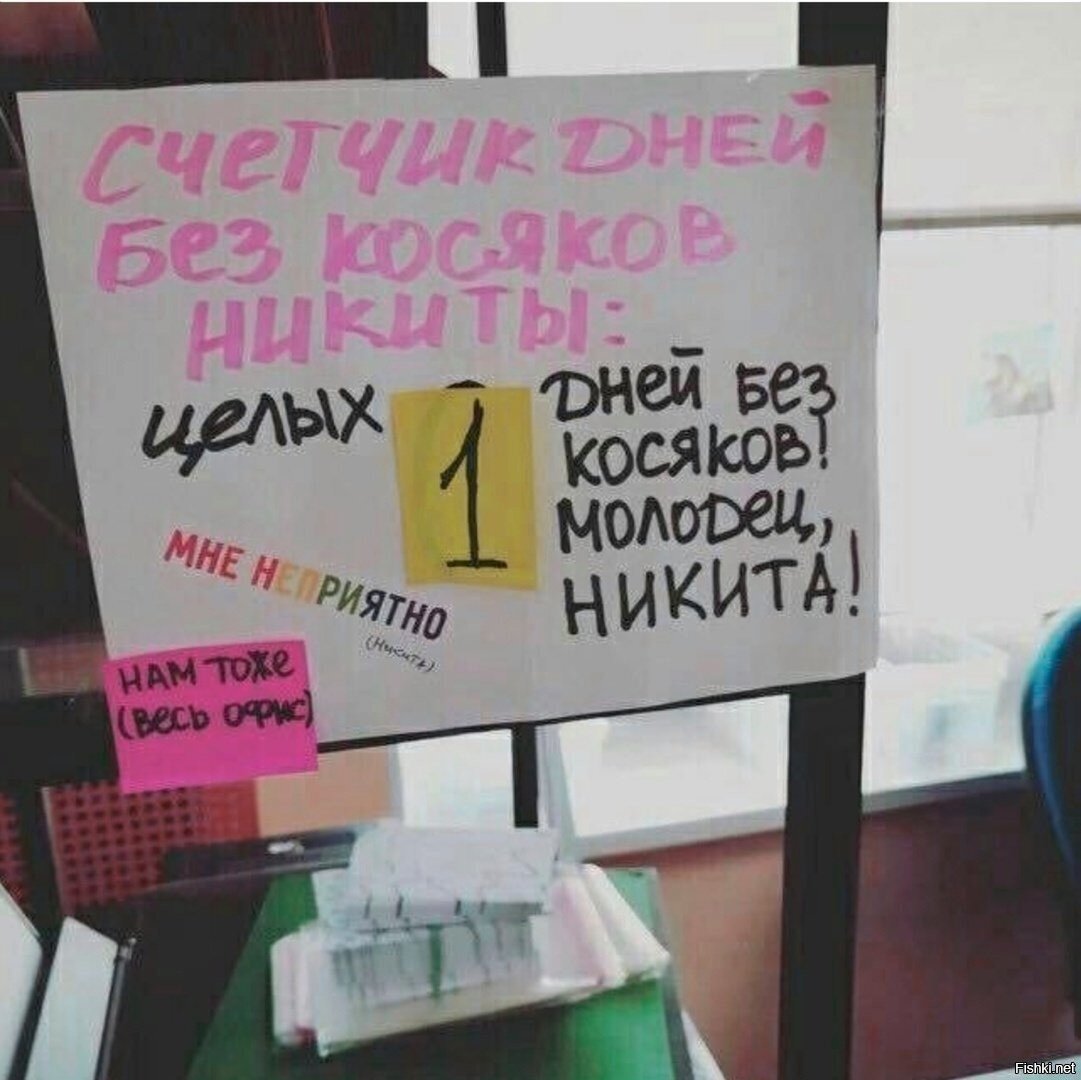 Счетчик дней
без косяков
Никиты:
целых 1 дней без
косяков!
молодец,
Никита!
МНЕ НЕПРИЯТНО
(Никита)
нам тоже
(весь офис)
Fishki.net